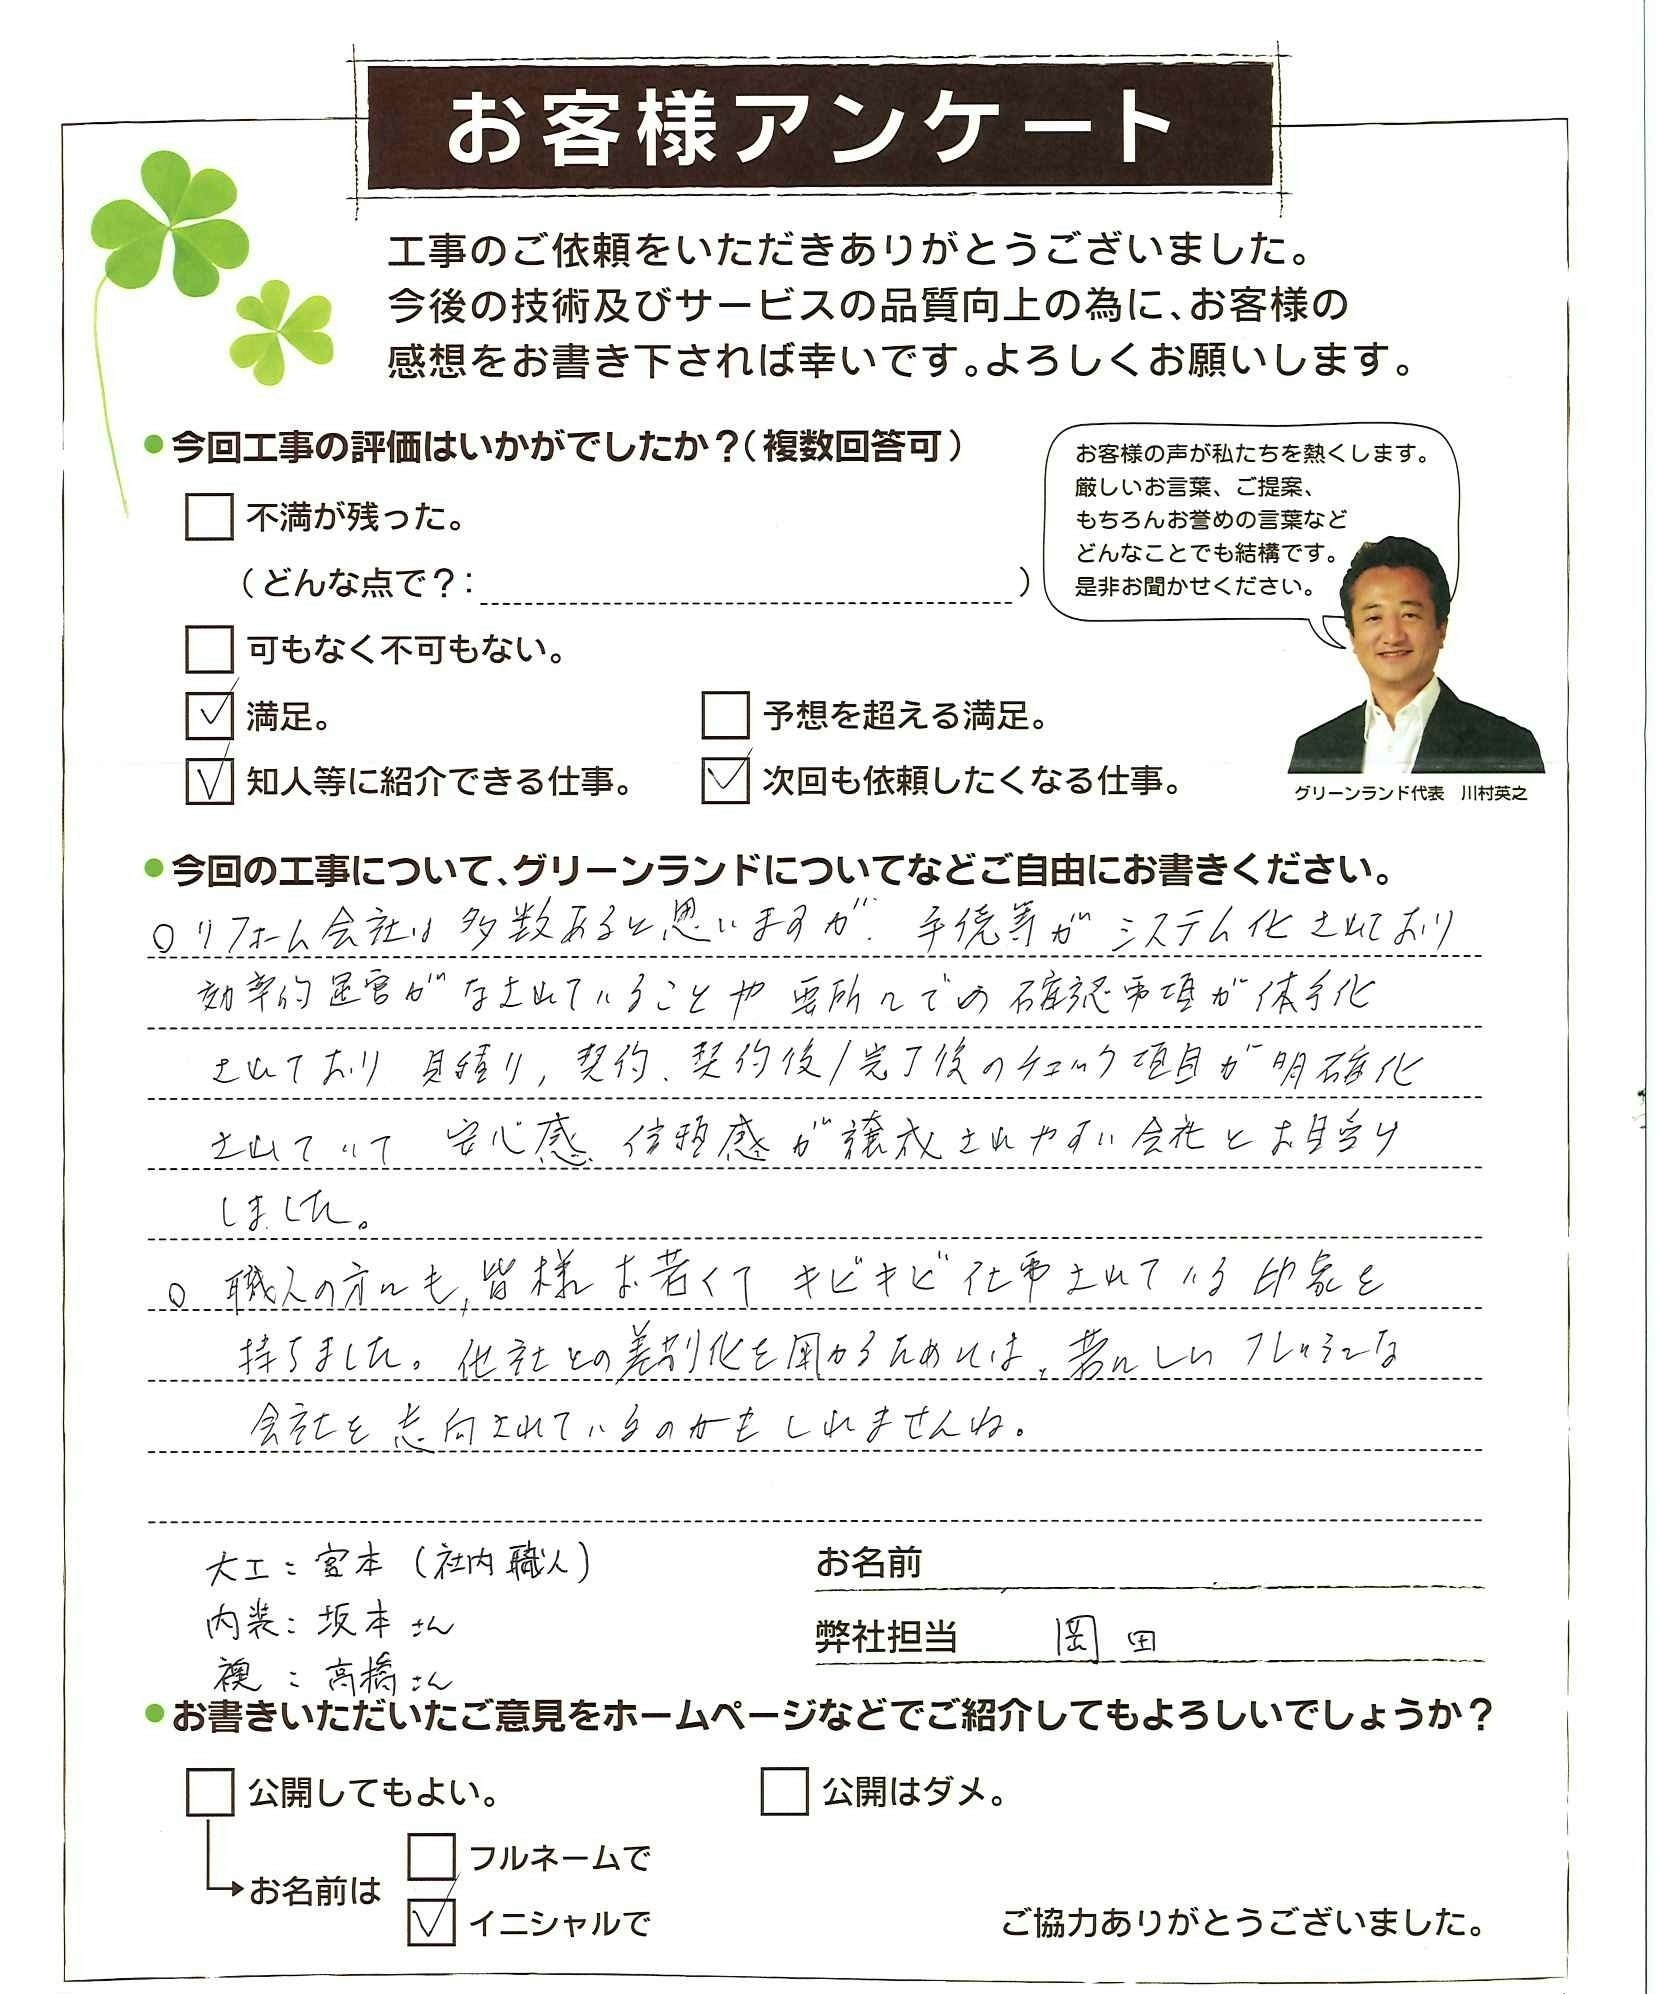 お客様アンケート
工事のご依頼をいただきありがとうございました。
今後の技術及びサービスの品質向上の為に、お客様の
感想をお書き下されば幸いです。よろしくお願いします。
●今回工事の評価はいかがでしたか？（複数回答可）
不満が残った。
（どんな点で？：　）
可もなく不可もない。
満足。
予想を超える満足。
知人等に紹介できる仕事。
次回も依頼したくなる仕事。
お客様の声が私たちを熱くします。
厳しいお言葉、ご提案、
もちろんお誉めの言葉など
どんなことでも結構です。
是非お聞かせください。
グリーンランド代表　川村英之
●今回の工事について、グリーンランドについてなどご自由にお書きください。
○リフォーム会社は多数あると思いますが、手続等がシステム化されており
効率的運営がなされていることや要所々での確認事項が体系化
されており見積り，契約、契約後/完了後のチェック項目が明確化
されていて 安心感、信頼感が醸成されやすい会社とお見受け
しました。
○ 職人の方々も，皆様お若くてキビキビ仕事されている印象を
持ちました。他社との差別化を図かるためには、若々しいフレッシュな
会社を志向されているのかもしれませんね。
大工：宮本（社内職人）
内装：坂本さん
襖：高橋さん
お名前
弊社担当　岡田
●お書きいただいたご意見をホームページなどでご紹介してもよろしいでしょうか？
公開してもよい。
公開はダメ。
お名前は
フルネームで
イニシャルで
ご協力ありがとうございました。